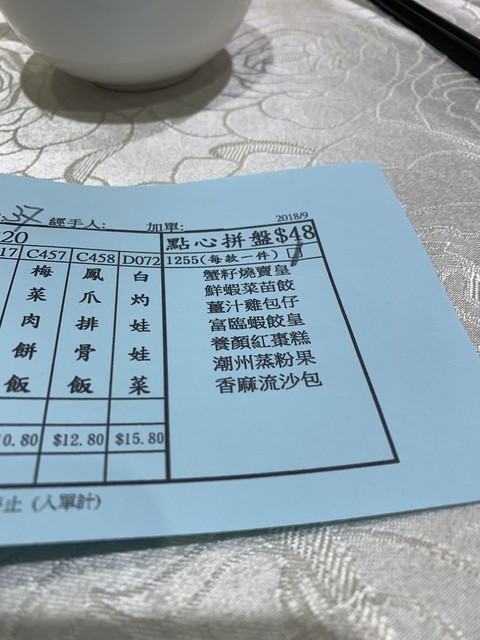 37 經手人: 加單: 2018/9
20 點心拼盤$48
17 C457 C458 D072 1255(每款一件)
梅菜肉餅飯
鳳爪排骨飯
白灼娃娃菜
蟹籽燒賣皇
鮮蝦菜苗餃
薑汁雞包仔
富臨蝦餃皇
養顏紅棗糕
潮州蒸粉果
香麻流沙包
0.80 $12.80 $15.80
止 (人單計)